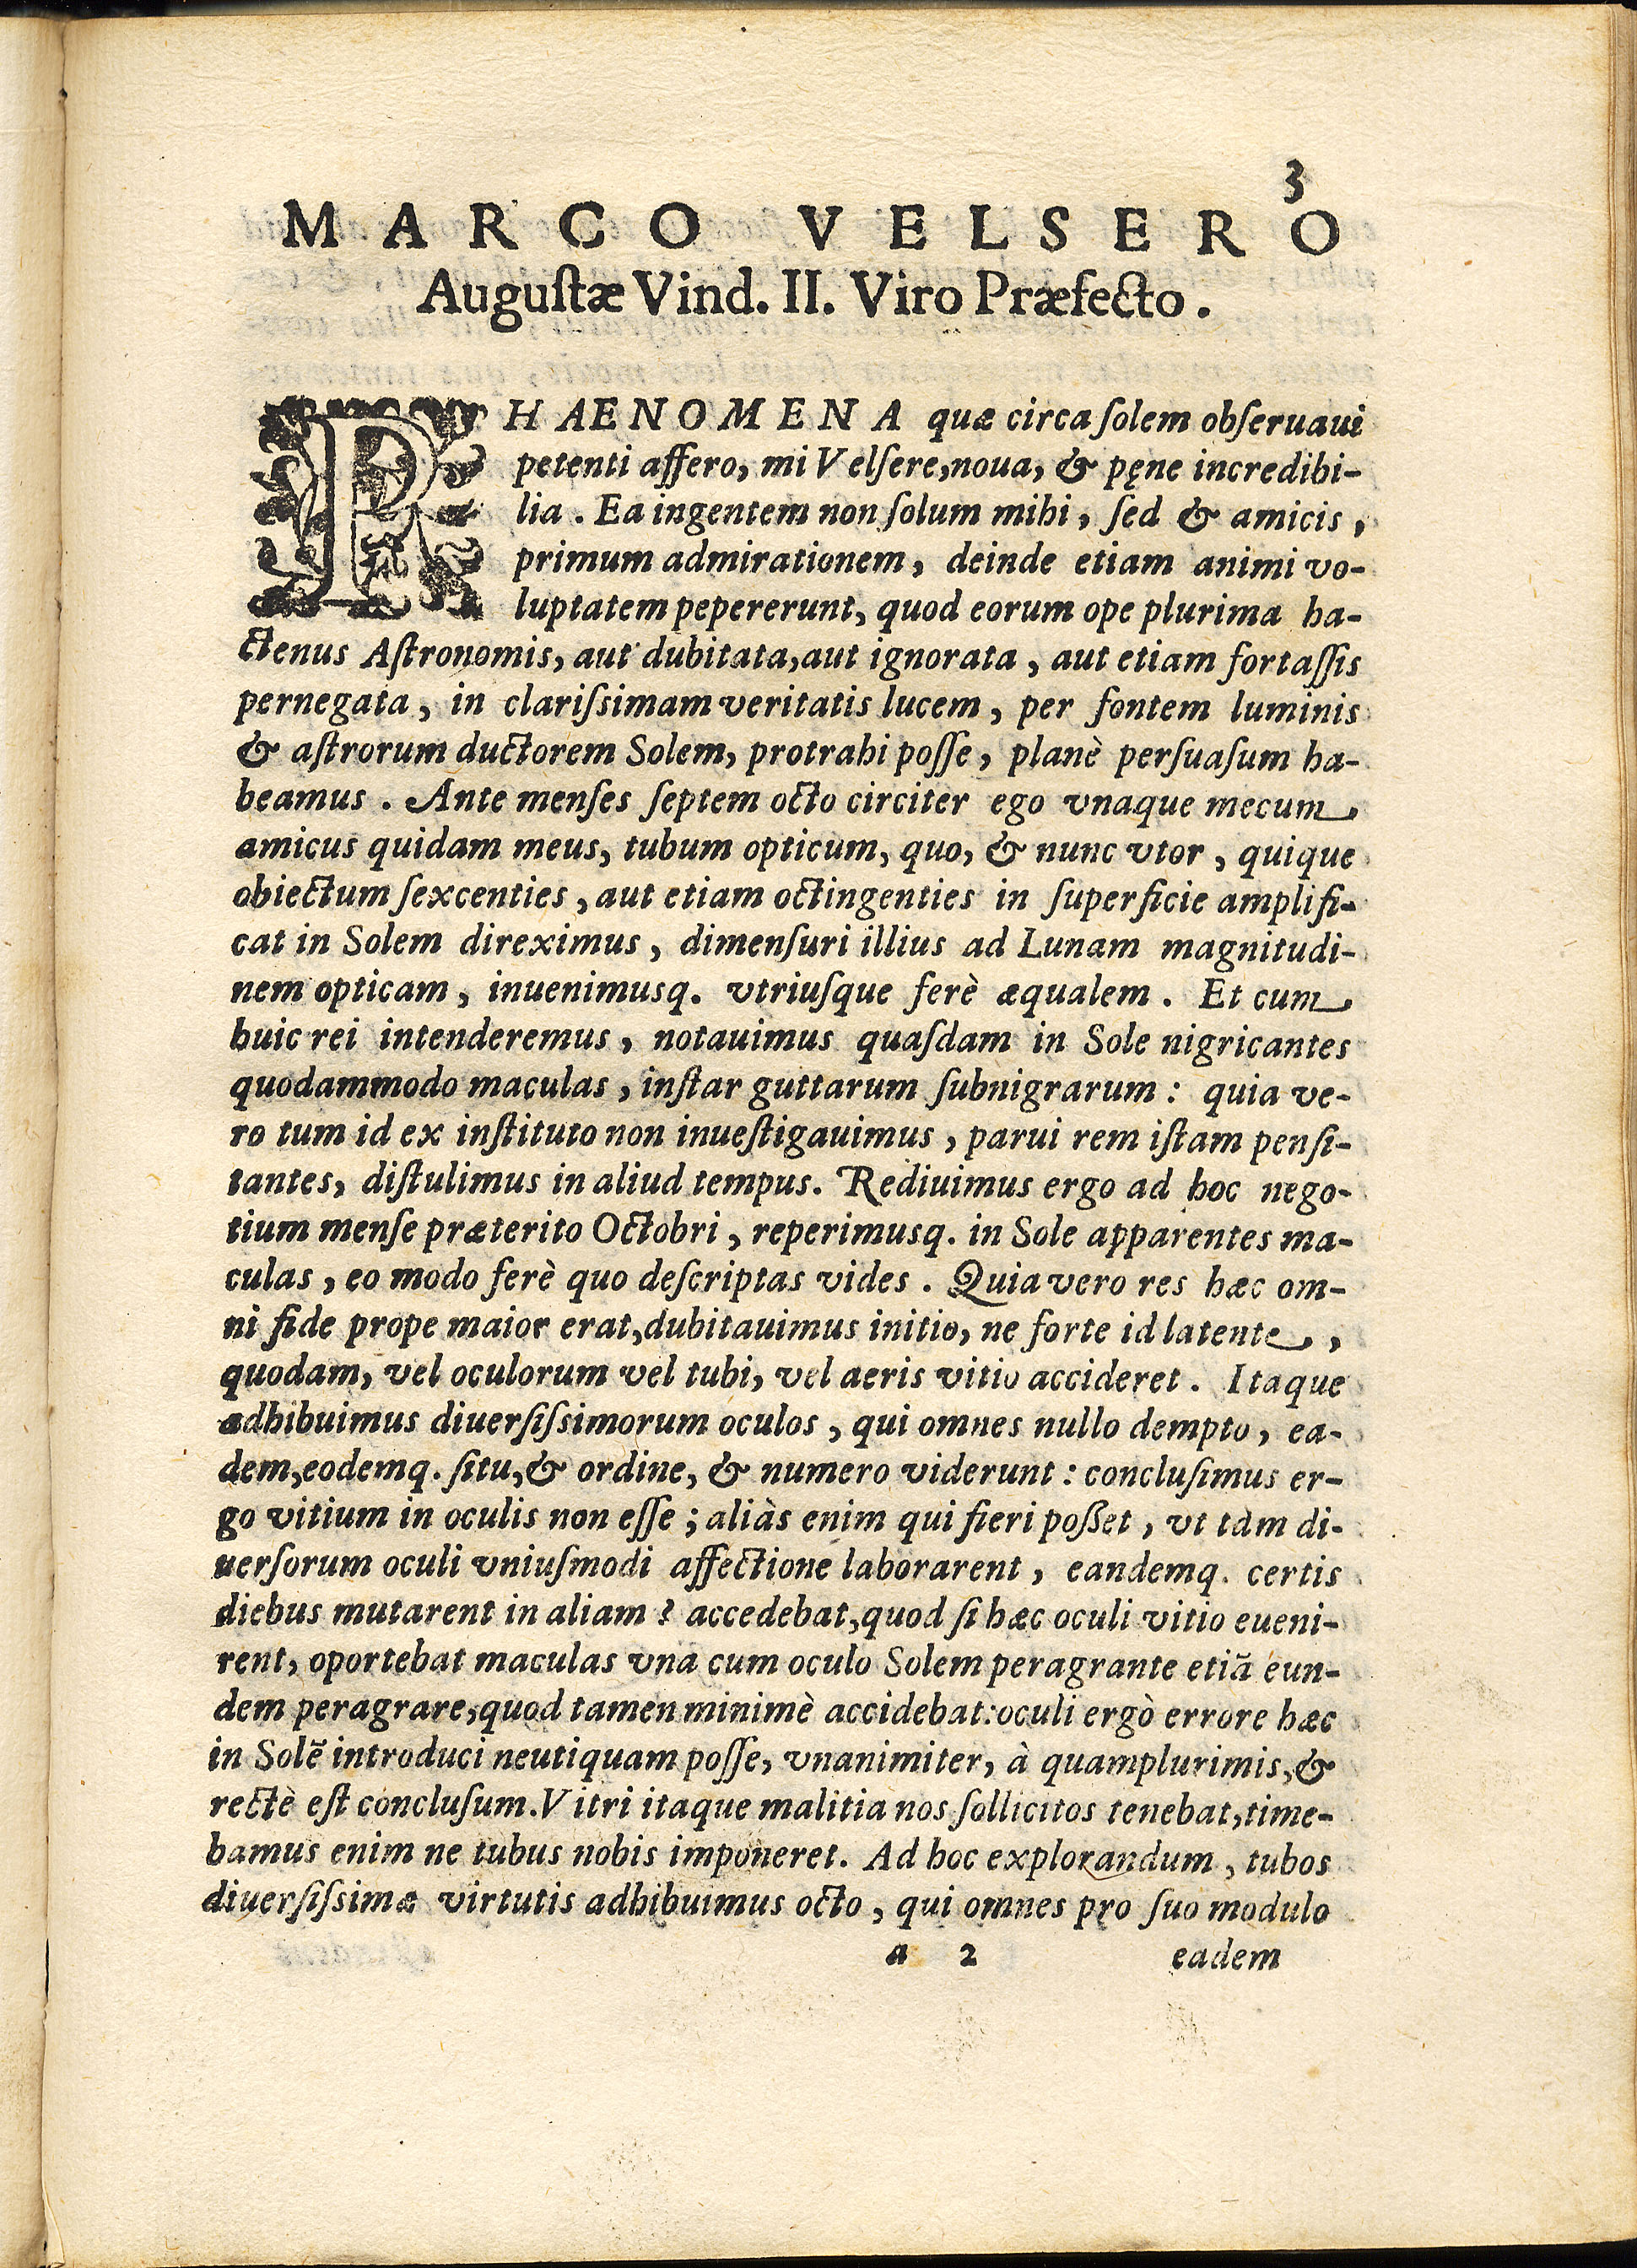 3
MARCO VELSERO
Auguſtæ Vind. II. Viro Præfecto.
PHAENOMENA quæ circa ſolem obſeruaui
petenti affero, mi Velſere, noua, & pęne incredibi-
lia. Ea ingentem non ſolum mihi, ſed & amicis,
primum admirationem, deinde etiam animi vo-
luptatem pepererunt, quod eorum ope plurima ha-
ctenus Aſtronomis, aut dubitata, aut ignorata, aut etiam fortaſſis
pernegata, in clariſsimam veritatis lucem, per fontem luminis
& aſtrorum ductorem Solem, protrahi poſſe, planè perſuaſum ha-
beamus. Ante menſes ſeptem octo circiter ego vnaque mecum
amicus quidam meus, tubum opticum, quo, & nunc vtor, quique
obiectum ſexcenties, aut etiam octingenties in ſuperficie amplifi-
cat in Solem direximus, dimenſuri illius ad Lunam magnitudi-
nem opticam, inuenimusq. vtriuſque ferè æqualem. Et cum
huic rei intenderemus, notauimus quaſdam in Sole nigricantes
quodammodo maculas, inſtar guttarum ſubnigrarum: quia ve-
ro tum id ex inſtituto non inueſtigauimus, parui rem iſtam penſi-
tantes, diſtulimus in aliud tempus. Rediuimus ergo ad hoc nego-
tium menſe præterito Octobri, reperimusq. in Sole apparentes ma-
culas, eo modo ferè quo deſcriptas vides. Quia vero res hæc om-
ni fide prope maior erat, dubitauimus initio, ne forte id latente,
quodam, vel oculorum vel tubi, vel aeris vitio accideret. Itaque
adhibuimus diuerſiſsimorum oculos, qui omnes nullo dempto, ea-
dem, eodemq. ſitu, & ordine, & numero viderunt: concluſimus er-
go vitium in oculis non eſſe; aliàs enim qui fieri poßet, vt tàm di-
uerſorum oculi vniuſmodi affectione laborarent, eandemq. certis
diebus mutarent in aliam? accedebat, quod ſi hæc oculi vitio eueni-
rent, oportebat maculas vna cum oculo Solem peragrante etiã eun-
dem peragrare, quod tamen minimè accidebat: oculi ergò errore hæc
in Solẽ introduci neutiquam poſſe, vnanimiter, à quamplurimis, &
rectè eſt concluſum. Vitri itaque malitia nos ſollicitos tenebat, time-
bamus enim ne tubus nobis imponeret. Ad hoc explorandum, tubos
diuerſiſsimæ virtutis adhibuimus octo, qui omnes pro ſuo modulo
a 2 eadem